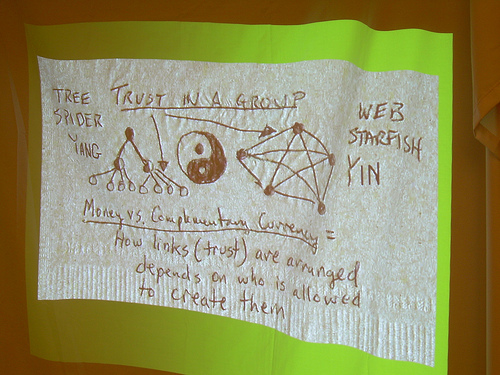 TRUST IN A GROUP
TREE
SPIDER
YANG
WEB
STARFISH
YIN
Money vs. Complementary Currency =
How links (trust) are arranged
depends on who is allowed
to create them